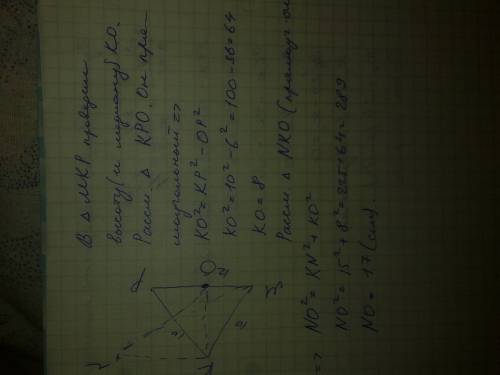 В △ MKP проведем
высоту (и медиану) KO.
Рассм. △ KPO. Он пря-
моугольный =>
KO² = KP² - OP²
KO² = 10² - 6² = 100 - 36 = 64
KO = 8
Рассм △ NKO (прямоуг.
=>
NO² = KN² + KO²
NO² = 15² + 8² = 225 + 64 = 289
NO = 17 (см)